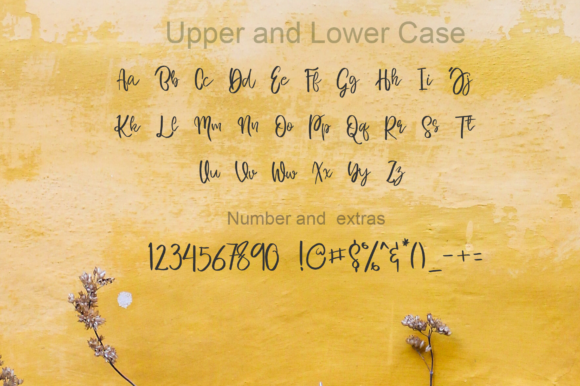 Upper and Lower Case
Aa Bb Cc Dd Ee Ff Gg Hh Ii Jj
Kk Ll Mm Nn Oo Pp Qq Rr Ss Tt
Uu Vv Ww Xx Yy Zz
Number and extras
1234567890 !@#$%^&*()_-+=